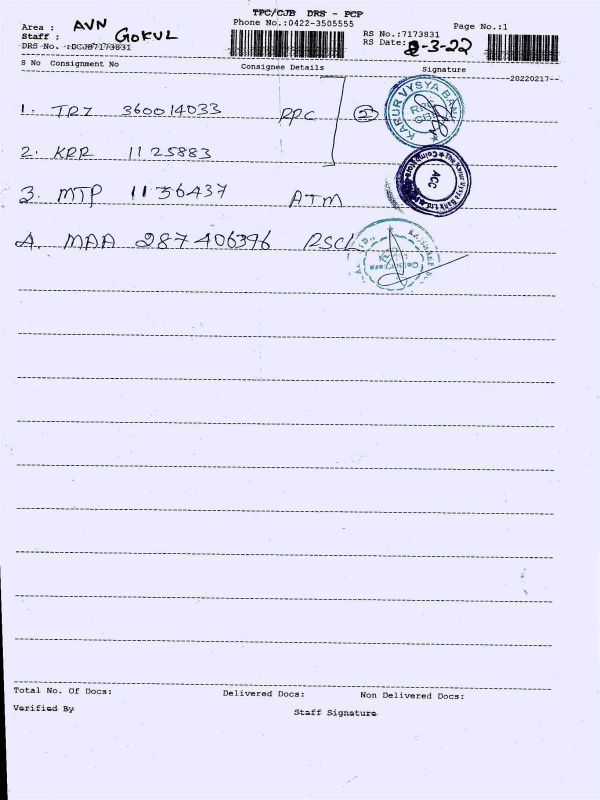 TPC/CJB DRS - PCP
Area : AVN Phone No.:0422-3505555 RS No.:7173831 Page No.:1
Staff : GOKUL RS Date: -3-22
DRS No. :DCJB7173831
S No Consignment No Consignee Details Signature
20220217
1. TRZ 360014033 RPC 2 KARUR VYSYA BANK
2. KRR 1125883
3. MTP 1136437 ATM ACC
4. MAA 287406396 RSCL
Total No. Of Docs: Delivered Docs: Non Delivered Docs:
Verified By Staff Signature